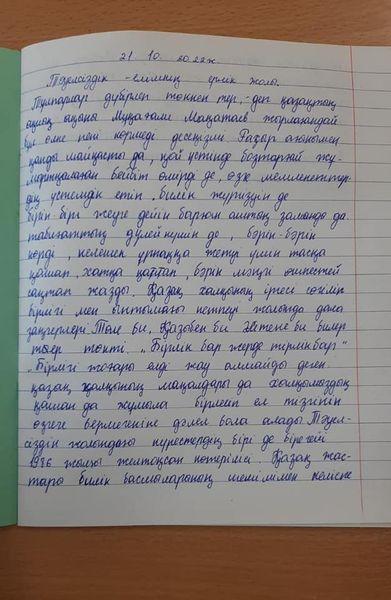 21. 10. 2022ж.
Тәуелсіздік - елімнің ерлік жолы.
Тұлпарлар дүбірлеп төккен тер, - деп қазақтың
ақиық ақыны Мұқағали Мақатаев жырлағандай
бұл өлке нені көрмеді десеңізші. Ғасыр ағынымен
қанды майдасты да, қой үстінде бозторғай жұ-
мыртқалаған бейбіт өмірді де, өзге мемлекеттер-
дің үстемдік етіп, билік жүргізуін де
бірін-бірі жеуге дейін барған аштық заманда да
табиғаттың дүлей күшін де, бәрін-бәрін
көрді, келешек ұрпаққа жетер үшін тасқа
қашап, хатқа қаттап, бәрін мәңгі өшпестей
сақтап жазды. Қазақ халқының іргесі сөгіліп
бірлігі мен ынтымағы кеткен жағында дала
заңгерлері Төле би, Қазыбек би Әйтеке би билер
тер төкті. „Бірлік бар жерде тірлік бар"
„Бірлігі жоғары елді жау алмайды деген
қазақ халқының мақалдары да халқымыздың
қашан да жұмыла бірлесіп ел тізгінін
өзгеге бермегеніне дәлел бола алады. Тәуел-
сіздік жолындағы күрестердің бірі де бірегейі
1986 жылғы желтоқсан көтерілісі. Қазақ жас-
тары билік басшыларының шешімімен келіспе